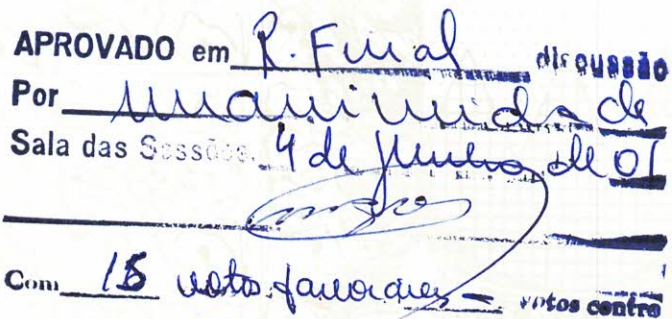 APROVADO em R. Final discussão
Por unanimidade
Sala das Sessões. 4 de Junho de 01
Com 15 votos favoraveis - votos contra